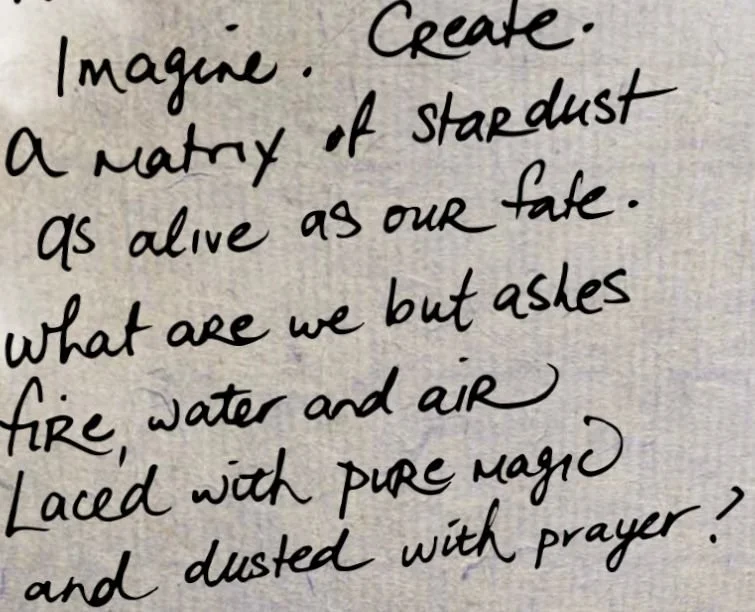 Imagine. Create.
a matrix of stardust
as alive as our fate.
what are we but ashes
fire, water and air
Laced with pure magic
and dusted with prayer?